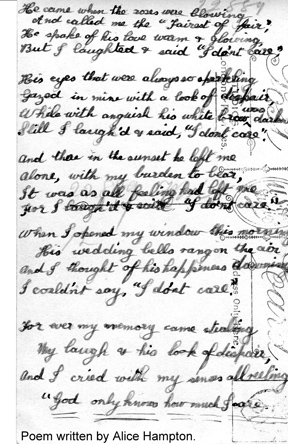 He came when the roses were blowing
And called me the "Fairest of fair",
He spake of his love warm & glowing,
But I laughted & said "I dont care"
His eyes that were always so sparkling
Gazed in mine with a look of dispair,
While with anguish his white brow was darkn
Still I laugh'd & said, "I dont care".
And thae in the sunset he left me
Alone, with my burden to bear,
It was as all feeling had left me
For I laugh'd & said "I dont care"
When I opened my window this morning
His wedding bells rang on the air
And I thought of his happiness dawning
I couldn't say, "I dont care"
For ever my memory came stealing
My laugh & his look of dispair,
And I cried with my senses all reeling
"God only knows how much I care.
Poem written by Alice Hampton.